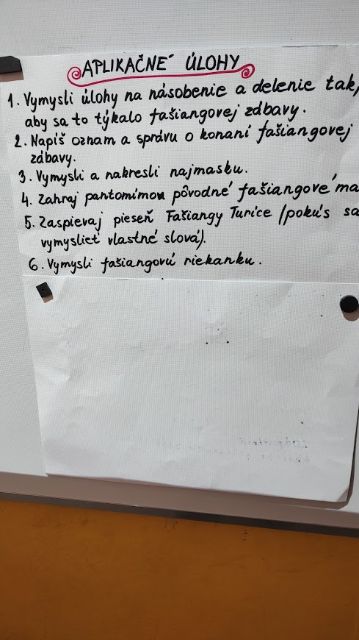 APLIKAČNÉ ÚLOHY
1. Vymysli úlohy na násobenie a delenie tak,
aby sa to týkalo fašiangovej zábavy.
2. Napíš oznam a správu o konaní fašiangovej
zábavy.
3. Vymysli a nakresli najmasku.
4. Zahraj pantomímou pôvodné fašiangové ma
5. Zaspievaj pieseň Fašiangy Turíce (pokús sa
vymyslieť vlastné slová).
6. Vymysli fašiangovú riekanku.